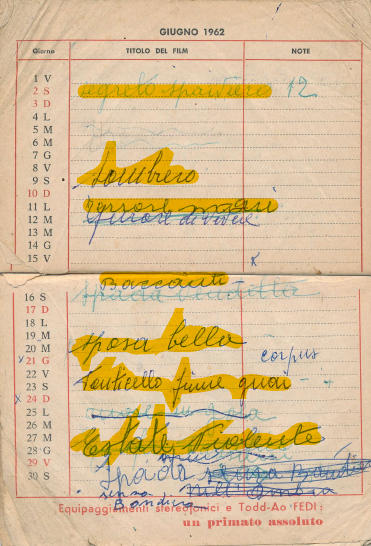 GIUGNO 1962
Giorno TITOLO DEL FILM NOTE
1 V
2 S segreto sparviero 12
3 D
4 L
5 M
6 M
7 G
8 V
9 S Sombrero
10 D
11 L Terrore mari
12 M Furore di vivere
13 M
14 G
15 V K
Baccanti
16 S Spada vendetta
17 D
18 L
19 M
20 M sposa bella
x 21 G corpus
22 V
23 S Ponticello fiume guai
x 24 D
25 L
26 M
27 M Estate Violenta
28 G
29 V
30 S Spada senza Bandiera
senza nell' Ombra
Bandiera
Equipaggiamenti stereofonici e Todd-Ao FEDI:
un primato assoluto